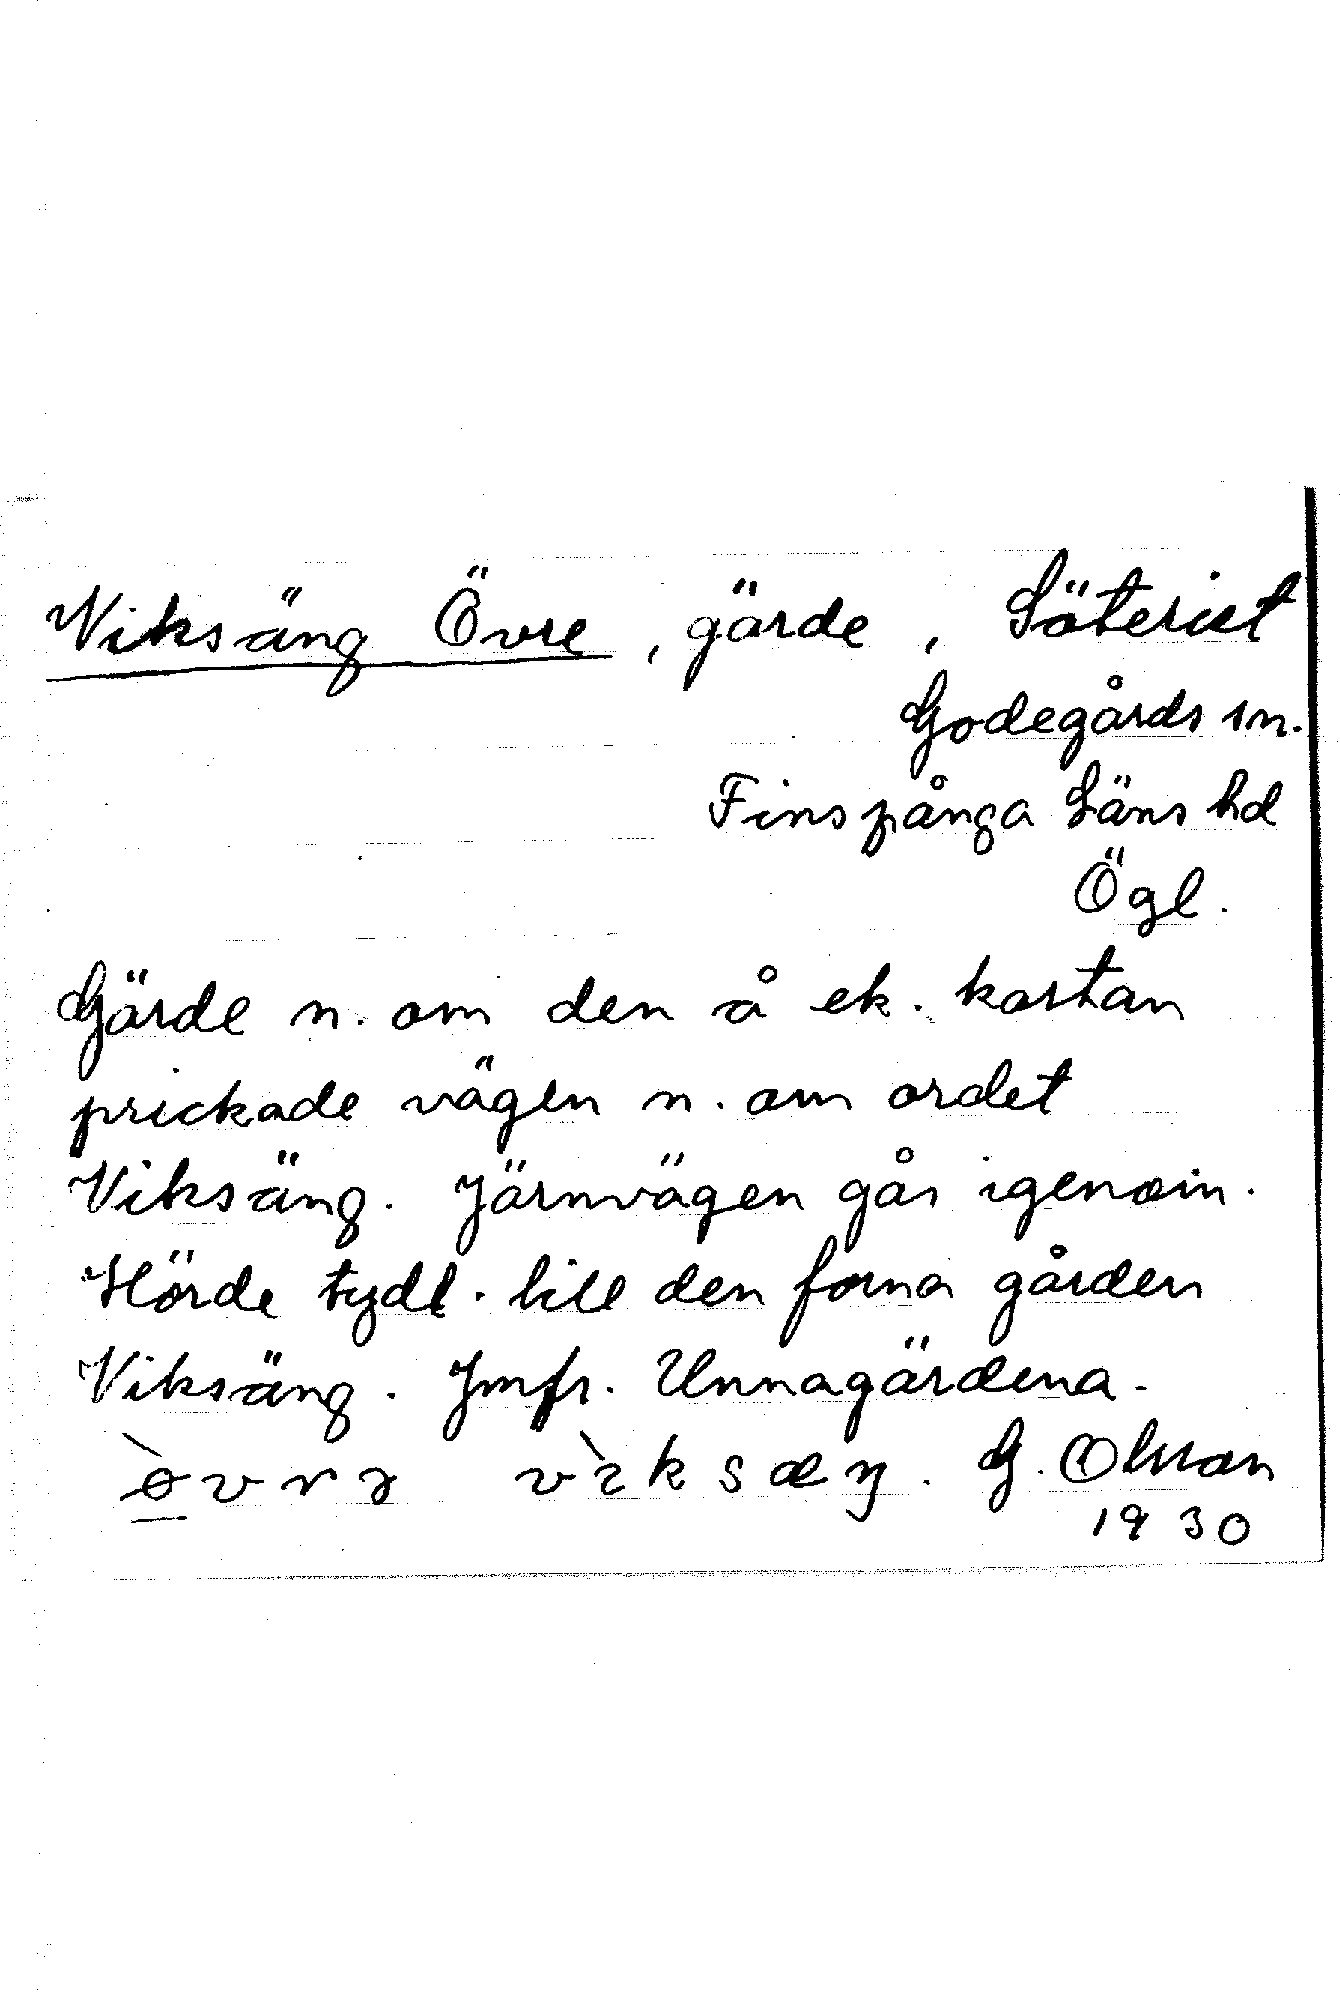 Viksäng Övre, gärde, Säteriet
Godegårds sn.
Finspånga Läns hd
Ögl.
Gärde n. om den å ek. kartan
prickade vägen n. om ordet
Viksäng. Järnvägen går igenom.
Hörde tydl. till den forna gården
Viksäng. Jmfr. Unnagärdena.
G. Olsson
1930